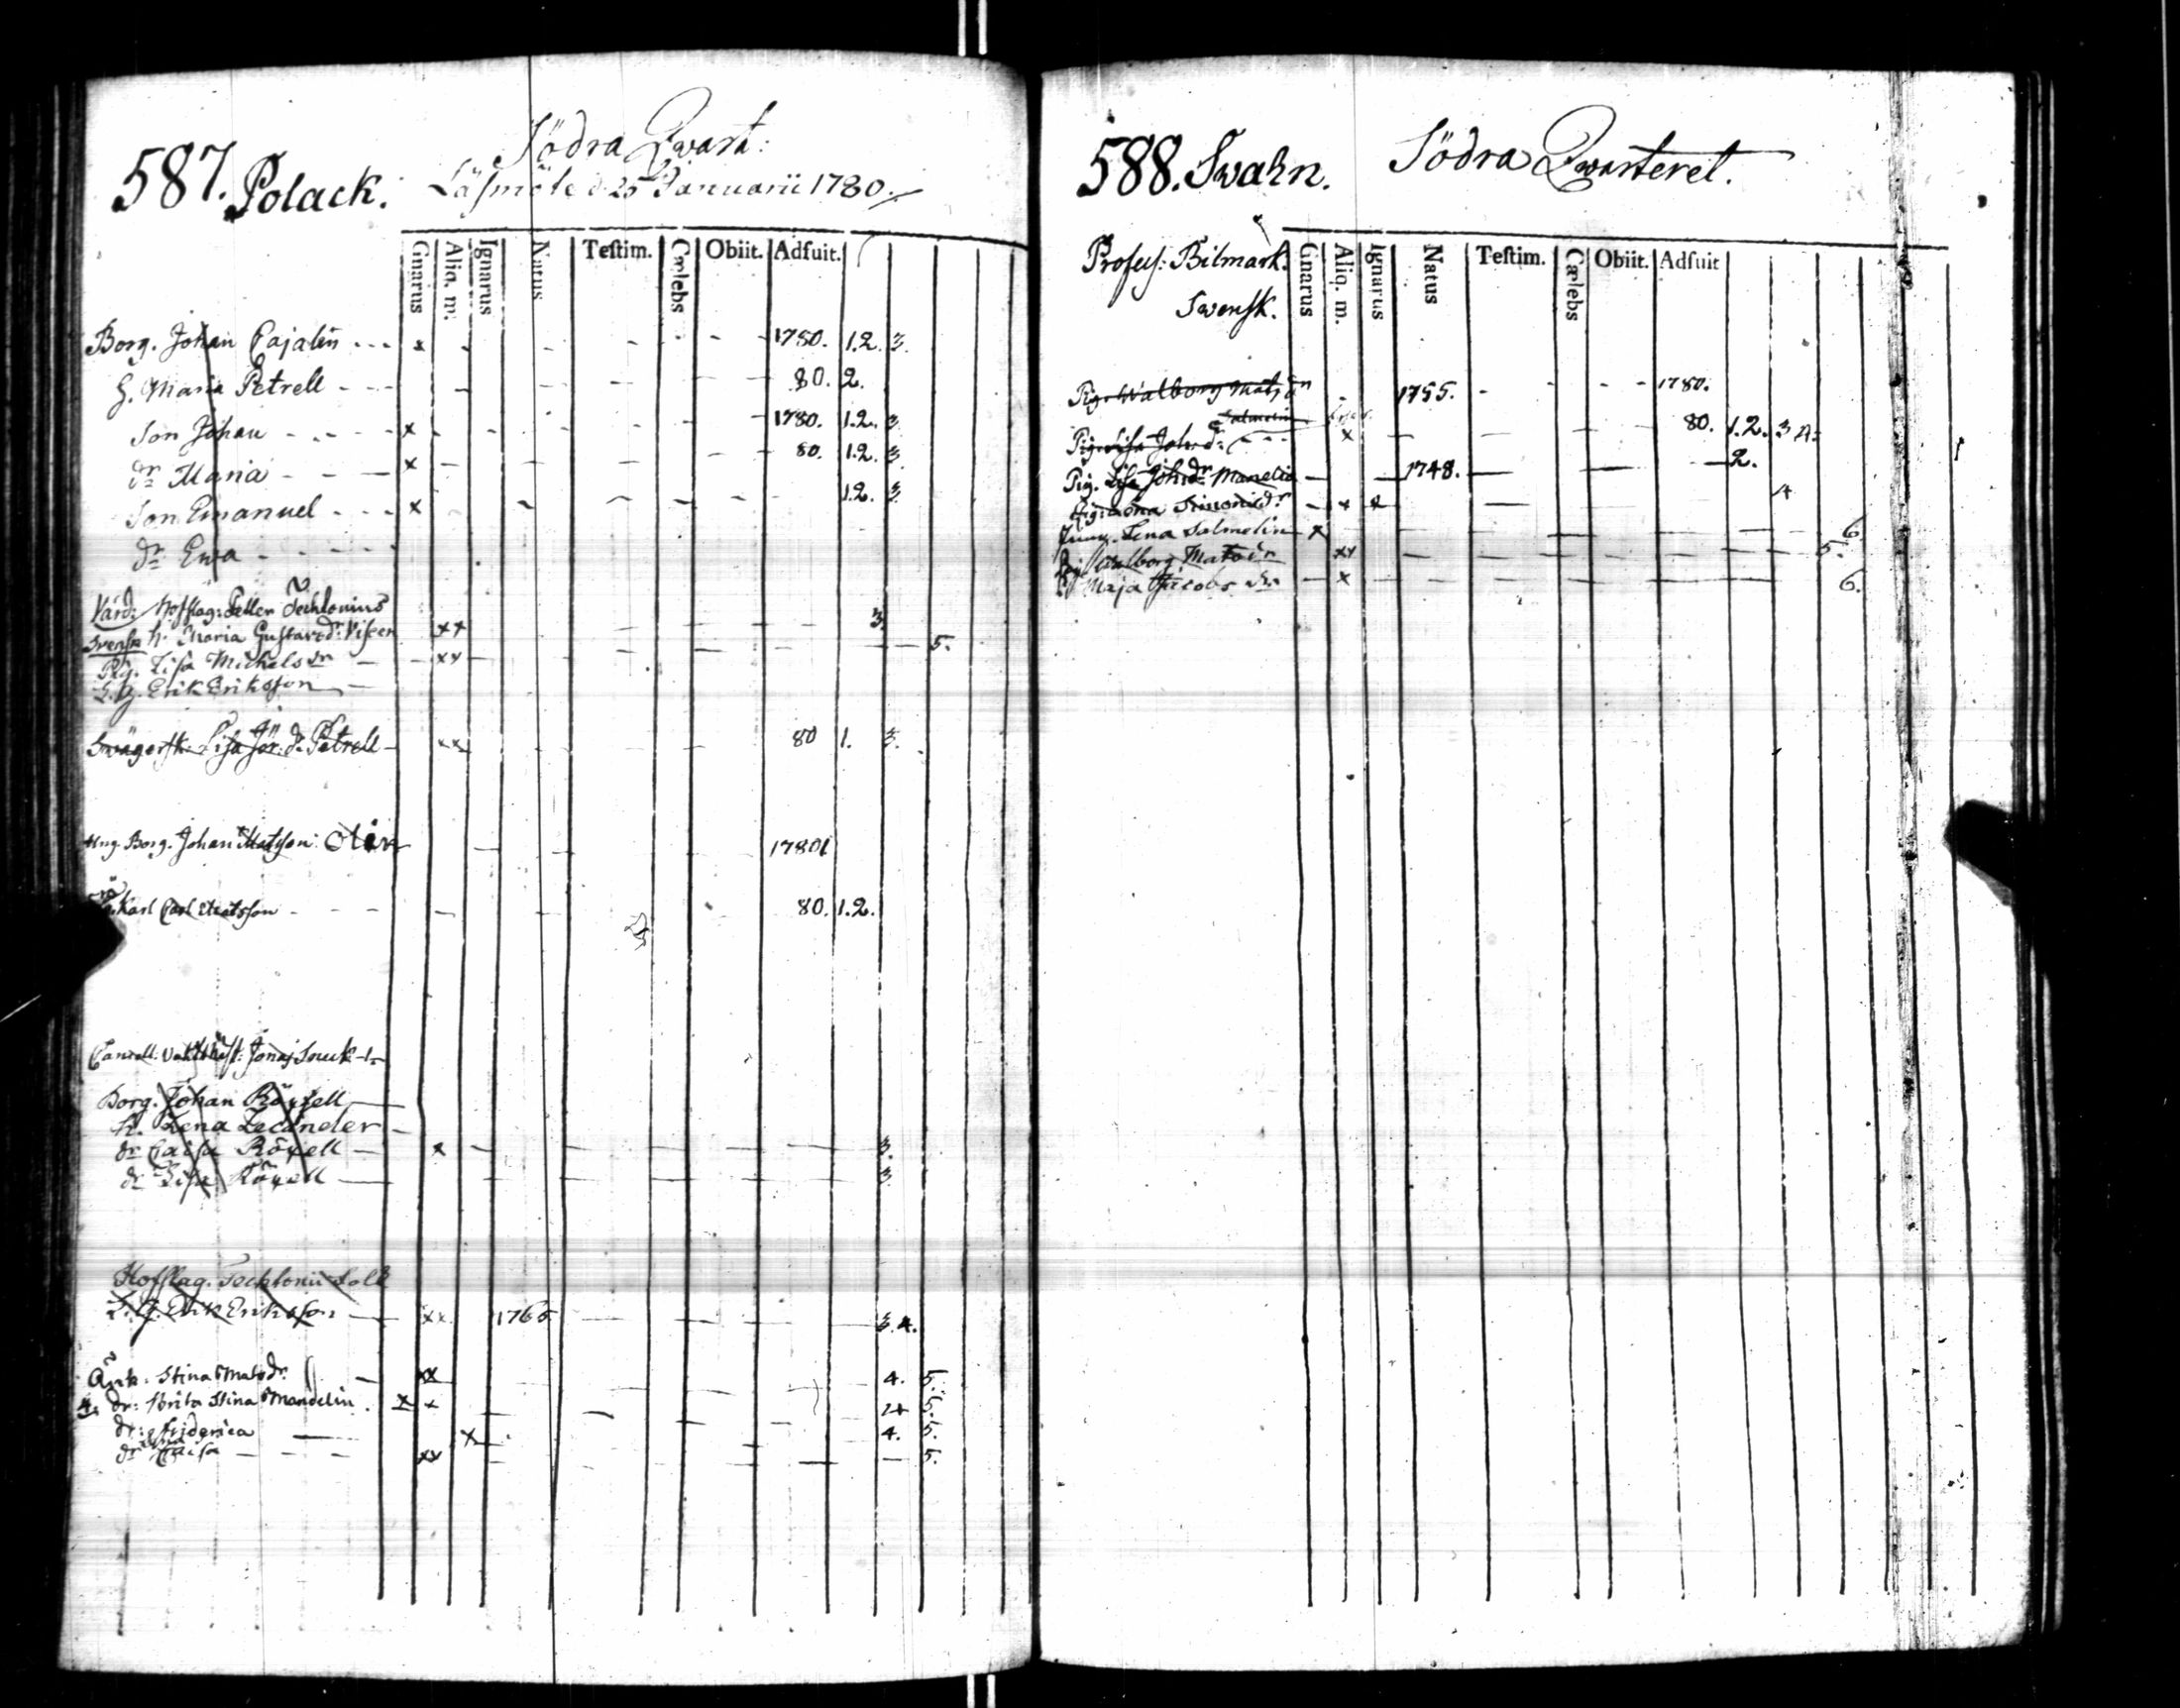 587. Polack.
Södra Qwart:
Läsmöte d. 25 Januarii 1780.
Gnarus Aliq. m. Ignarus Natus Testim. Cælebs Obiit. Adfuit.
Borg. Johan Cajalén - - - x - - - - - - 1780. 1.2. 3.
H. Maria Petrell - - - - - - 80. 2.
Son Johan - - - - x - - - - - 1780. 1.2. 3.
dr Maria - - - x - - - - 80. 1.2. 3.
Son Emanuel - - - x - - - - 1.2. 3.
dr Ewa - - - -
Värd: Hofslag: Techlonius 3.
Svensk h. Maria Gustavsdr: xx
Pig. Lisa Michelsdr - - xx - - - - - - 5.
L. G. Erik Eriksson - -
Swägersk: Lisa Jör. dr Petrell - xx - - - - 80 1. 3.
Borg. Johan Matsson - - - - 1780 1
Karl Carl Matsson - - - - - - 80. 1.2.
Jonas Snuk
Borg. Johan Röxell
h. Lena Zecander -
dr Caisa Röxell - x - - - - - 3.
dr Lisa Röxell - - - - - - 3.
Hofslag. Techlonii Folk
L. G. Erik Eriksson - xx 1765 - - - - 3.4.
Änk. Stina Matsdr - xx - - - - 4. 5.
dr: Brita Stina Mandelin. x x - - - - 5.
dr: Fridrica - x - - - - 4. 5.
dr Caisa - - - - xx - - - - - - 5.
588. Swahn.
Södra Qwarteret.
Profess: Bilmark.
Swensk.
Gnarus Aliq. m. Ignarus Natus Testim. Cælebs Obiit. Adfuit
Pig. Walborg Mats dr - 1755. - - - - - 1780.
Salmelin
Pig. Lisa Johsd: - - - x - - - - 80. 1.2. 3 4:
Pig. Lisa Johsdr Manelia - - 1748. - - - 2.
Pig. Simonsdr - x x - - - 4
Jung. Lena Salmelin - x - - - - 6
Pig. Walborg Matsdr xx - - - - - - 5.
Pig Maja Jacobsdr - x - - - - - - 6.